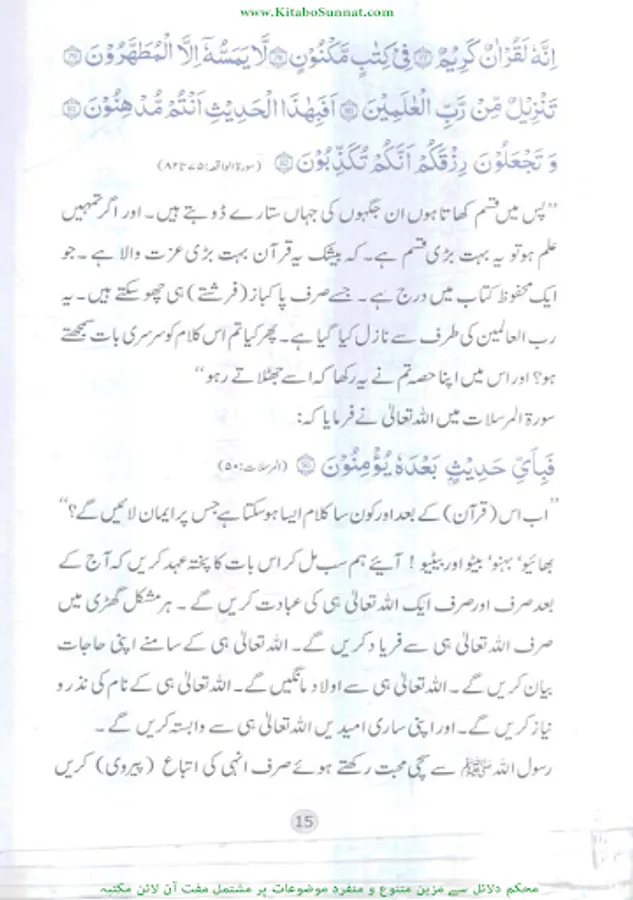 www.KitaboSunnat.com
اِنَّهٗ لَقُرْاٰنٌ كَرِيْمٌ ۝۷۷ فِيْ كِتٰبٍ مَّكْنُوْنٍ ۝۷۸ لَّا يَمَسُّهٗٓ اِلَّا الْمُطَهَّرُوْنَ ۝۷۹
تَنْزِيْلٌ مِّنْ رَّبِّ الْعٰلَمِيْنَ ۝۸۰ اَفَبِهٰذَا الْحَدِيْثِ اَنْتُمْ مُّدْهِنُوْنَ ۝۸۱
وَ تَجْعَلُوْنَ رِزْقَكُمْ اَنَّكُمْ تُكَذِّبُوْنَ ۝۸۲ (سورۃ الواقعہ: ۷۵ تا ۸۲)
”پس میں قسم کھاتا ہوں ان جگہوں کی جہاں ستارے ڈوبتے ہیں۔ اور اگر تمہیں
علم ہو تو یہ بہت بڑی قسم ہے۔ کہ بیشک یہ قرآن بہت بڑی عزت والا ہے۔ جو
ایک محفوظ کتاب میں درج ہے۔ جسے صرف پاکباز (فرشتے) ہی چھو سکتے ہیں۔ یہ
رب العالمین کی طرف سے نازل کیا گیا ہے۔ پھر کیا تم اس کلام کو سرسری بات سمجھتے
ہو؟ اور اس میں اپنا حصہ تم نے یہ رکھا کہ اسے جھٹلاتے رہو“
سورۃ المرسلات میں اللہ تعالیٰ نے فرمایا کہ:
فَبِاَيِّ حَدِيْثٍۭ بَعْدَهٗ يُؤْمِنُوْنَ ۝۵۰ (المرسلات: ۵۰)
”اب اس (قرآن) کے بعد اور کون سا کلام ایسا ہو سکتا ہے جس پر ایمان لائیں گے؟“
بھائیو، بہنو، بیٹو اور بیٹیو! آیئے ہم سب مل کر اس بات کا پختہ عہد کریں کہ آج کے
بعد صرف اور صرف ایک اللہ تعالیٰ ہی کی عبادت کریں گے۔ ہر مشکل گھڑی میں
صرف اللہ تعالیٰ ہی سے فریاد کریں گے۔ اللہ تعالیٰ ہی کے سامنے اپنی حاجات
بیان کریں گے۔ اللہ تعالیٰ ہی سے اولاد مانگیں گے۔ اللہ تعالیٰ ہی کے نام کی نذر و
نیاز کریں گے۔ اور اپنی ساری امیدیں اللہ تعالیٰ ہی سے وابستہ کریں گے۔
رسول اللہ ﷺ سے سچی محبت رکھتے ہوئے صرف انہی کی اتباع (پیروی) کریں
15
محکم دلائل سے مزین متنوع و منفرد موضوعات پر مشتمل مفت آن لائن مکتبہ